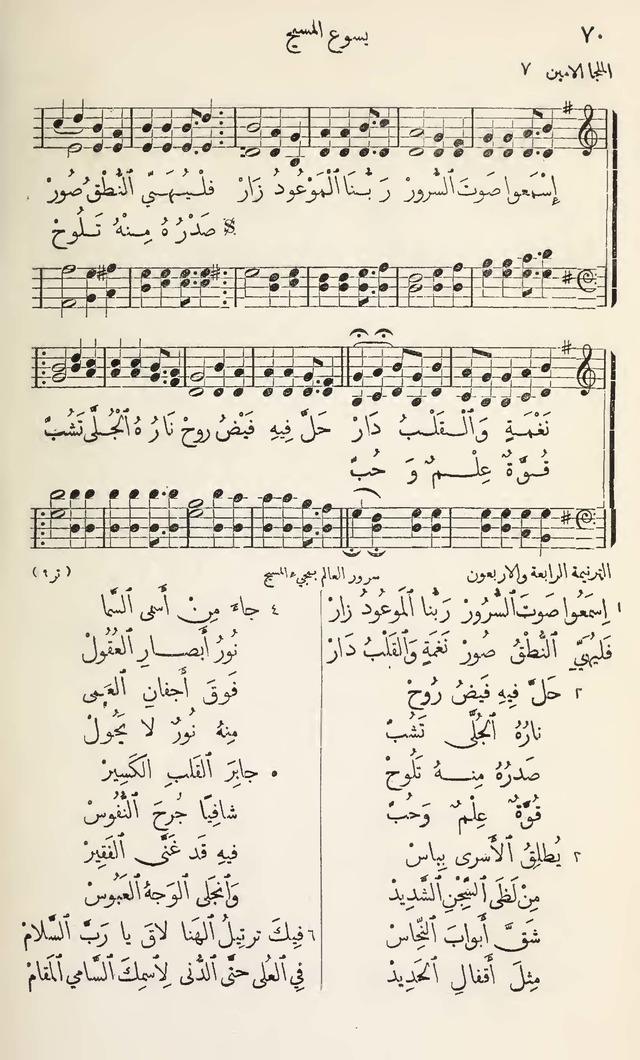 ٧٠
يسوع المسيح
الملجا الامين ٧
إِسْمَعوا صَوتَ السُّرورْ رَبُّنَا ٱلْمَوْعُودُ زَارْ فَلْيُهَيِّ ٱلنُّطْقُ صُورْ
صَدْرُهُ مِنْهُ تَلُوحْ
نَغْمَةٍ وَٱلْقَلْبُ دَارْ حَلَّ فِيهِ فَيْضُ روحْ نَارُهُ ٱلْجُلَّى تَشُبّْ
قُوَّةٌ عِلْمٌ وَ حُبّْ
الترنيمة الرابعة والاربعون
سرور العالم بمجيء المسيح
(تر٩)
١ إِسمَعُوا صَوتَ ٱلسُّرُورْ رَبُّنا ٱلمَوعُودُ زارْ
فَليُهَيِّ ٱلنُّطْقُ صُورْ نَغمَةٍ وَٱلقَلبُ دَارْ
٢ حَلَّ فِيهِ فَيضُ رُوحْ
نارُهُ ٱلجُلَّى تَشُبّْ
صَدرُهُ مِنهُ تَلُوحْ
قُوَّةٌ عِلْمٌ وَحُبّْ
٣ يُطلِقُ ٱلأَسرى بِباسْ
مِنْ لَظَى ٱلسِّجْنِ ٱلشَّدِيدْ
شَقَّ أَبوابَ ٱلنُّحاسْ
مِثلَ أَقفالِ ٱلحَدِيدْ
٤ جاءَ مِنْ أَسمى ٱلسَّما
نُورُ أَبصارِ ٱلعُقُولْ
فَوقَ أَجفانِ ٱلعَمى
مِنهُ نُورٌ لا يَحُولْ
٥ جابِرَ ٱلقَلبِ ٱلكَسِيرْ
شافِيًا جُرحَ ٱلنُّفُوسْ
فيهِ قَد غَنَّى ٱلفَقِيرْ
وَٱنجَلى ٱلوَجهُ ٱلعَبُوسْ
٦ فيكَ ترتِيلُ ٱلهَنا لاقَ يا رَبَّ ٱلسَّلامْ
فِي ٱلعُلى حتَّى ٱلدُّنى لِٱسمِكَ ٱلسَّامي ٱلمَقامْ